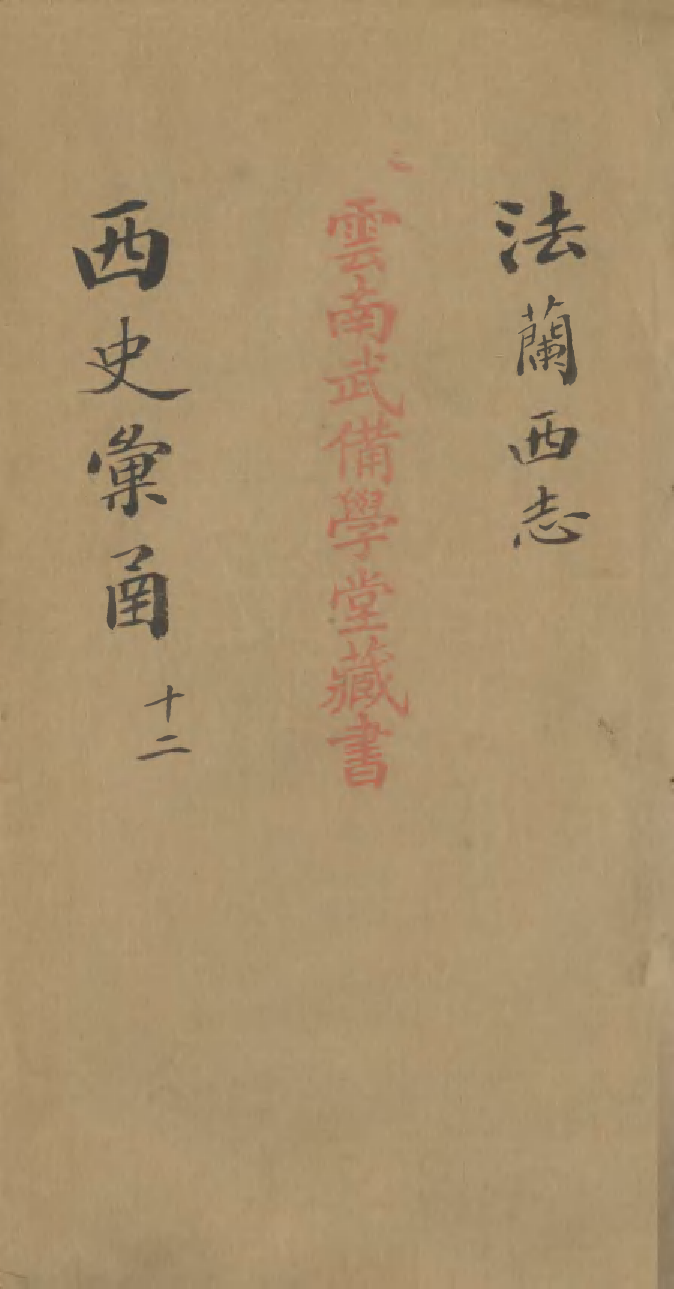 法蘭西志
雲南武備學堂藏書
西史彙函
十二